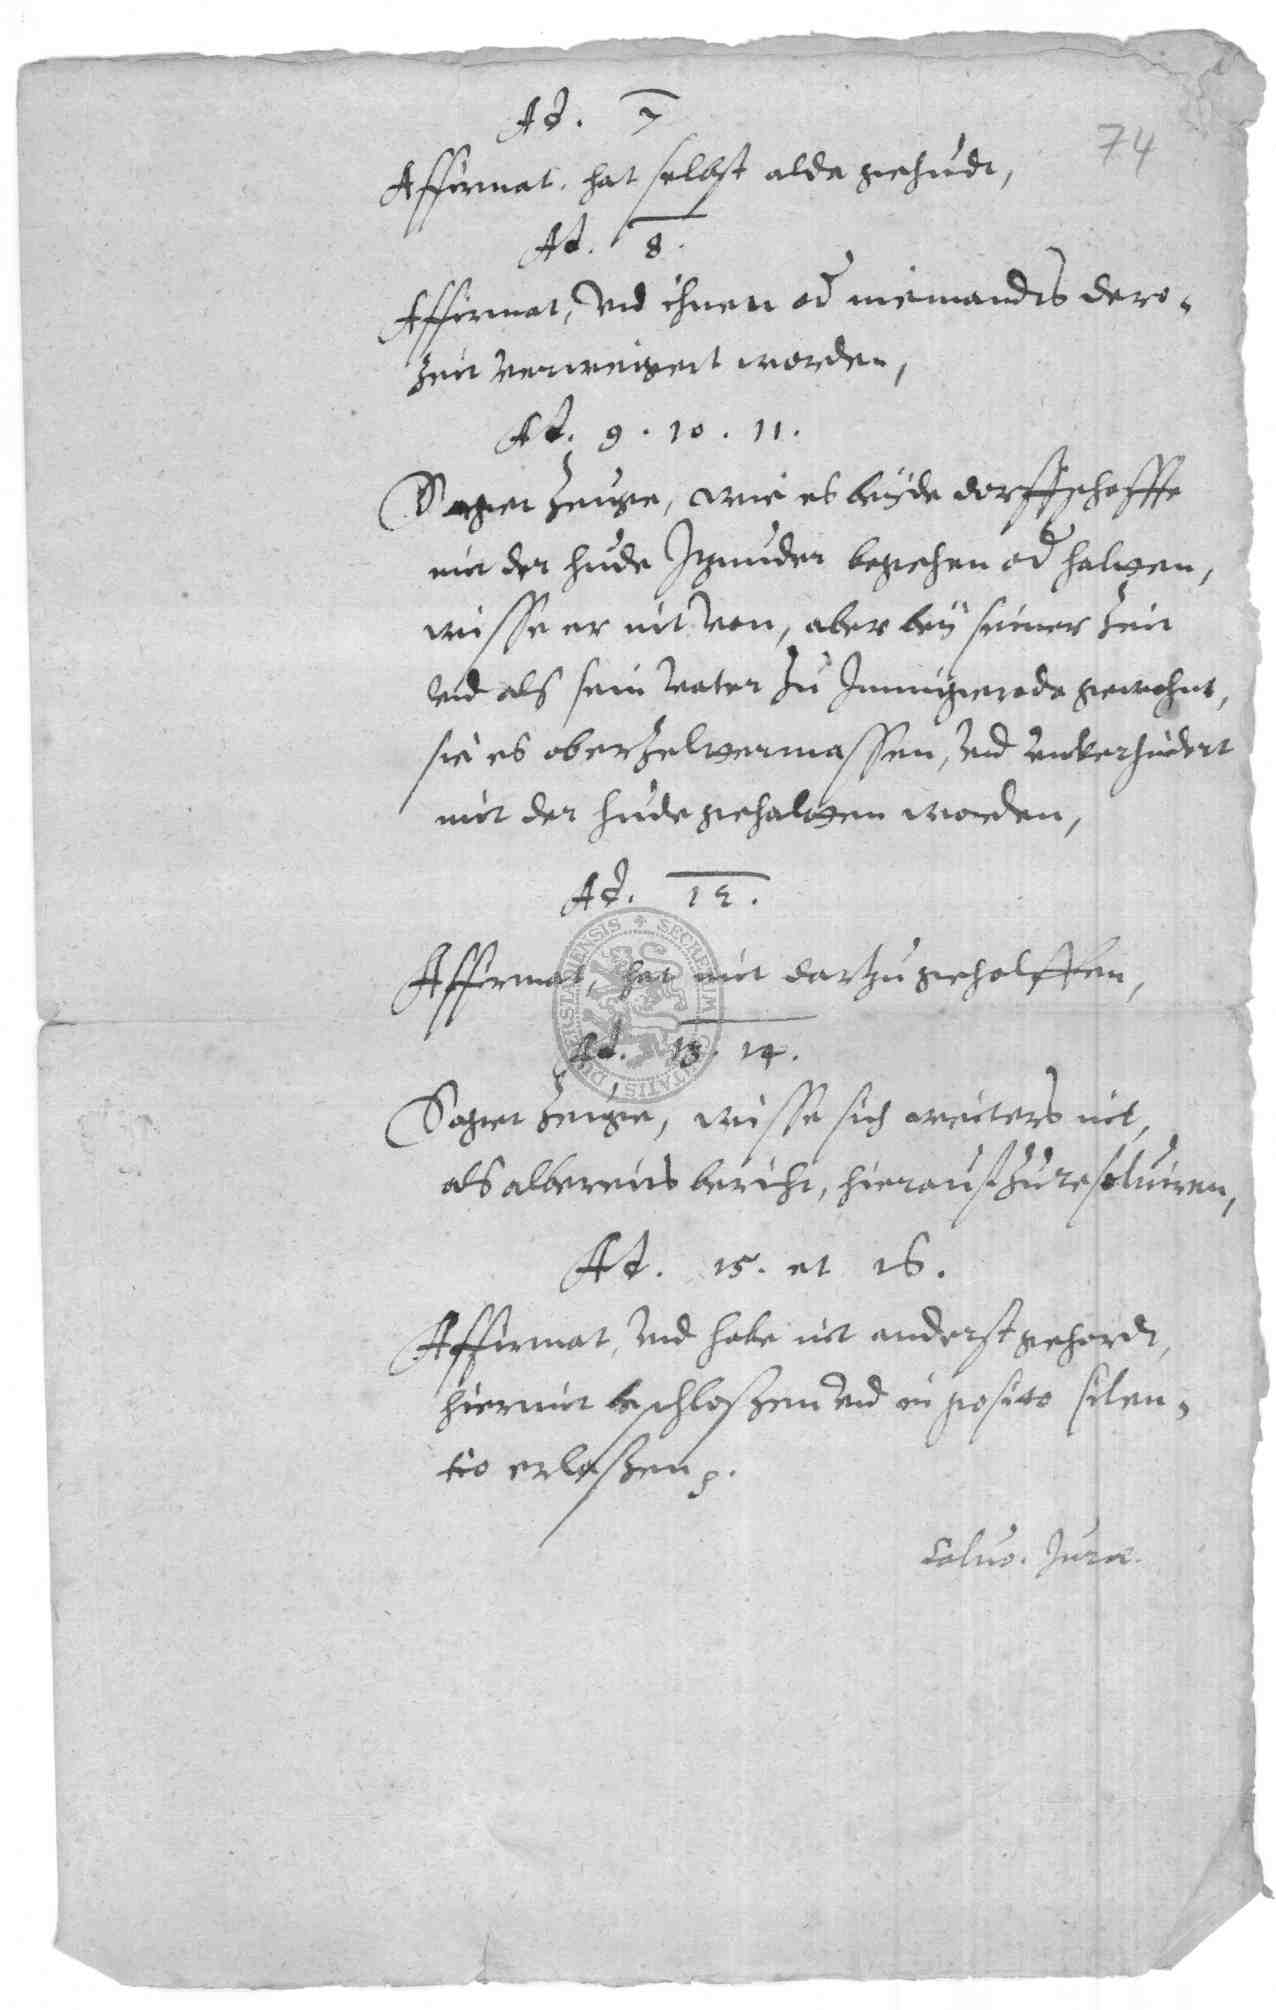 Ad. 7
74
Affirmat. hat selbst alda gehudt,
Ad. 8.
Affirmat, vnd ihnen od niemandts dero-
Zeit verweigert worden,
Ad. 9. 10. 11.
Saget Zeuge, wie es beyde dorffschafften
mit der hude Itzunder begehen od halten,
wisse er nit von, aber bey seiner Zeit
vnd als sein Vater zu Immigerode gewohnt,
sie es vnd vnverhindert
mit der hude gehalten worden,
Ad. 12.
Affirmat, hat mit dartzu geholffen,
Ad. 13. 14.
Saget Zeuge, wisse sich weiters nit,
als albereits bericht, hierauf zu resoluiren,
Ad. 15. et 16.
Affirmat, vnd habe nit anderst gehordt,
hiermit beschloßen vnd imposito silen-
tio erlaßen.
Saluo. Jure.
SECRETUM CIVITATIS DUDERSTADENSIS